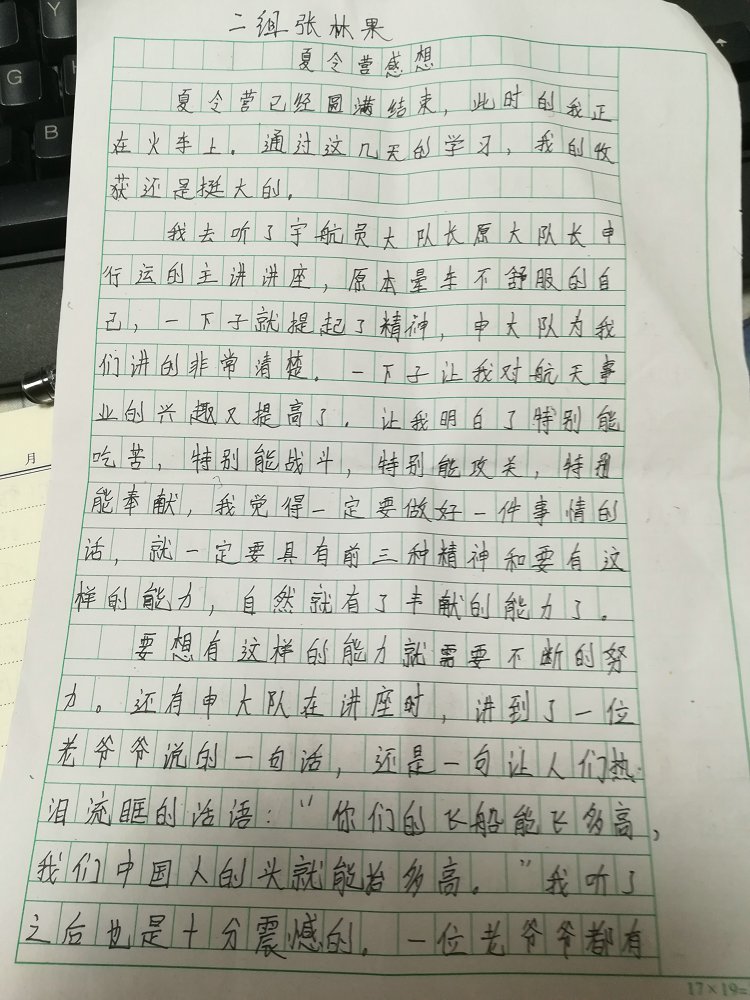 二组张林果
夏令营感想
夏令营已经圆满结束，此时的我正
在火车上。通过这几天的学习，我的收
获还是挺大的。
我去听了宇航员大队长原大队长申
行运的主讲讲座，原本晕车不舒服的自
己，一下子就提起了精神，申大队为我
们讲的非常清楚。一下子让我对航天事
业的兴趣又提高了。让我明白了特别能
吃苦，特别能战斗，特别能攻关，特别
能奉献，我觉得一定要做好一件事情的
话，就一定要具有前三种精神和要有这
样的能力，自然就有了丰献的能力了。
要想有这样的能力就需要不断的努
力。还有申大队在讲座时，讲到了一位
老爷爷说的一句话，还是一句让人们热
泪流眶的话语："你们的飞船能飞多高，
我们中国人的头就能抬多高。"我听了
之后也是十分震憾的。一位老爷爷都有
17×19=
月
Y
G
H
B